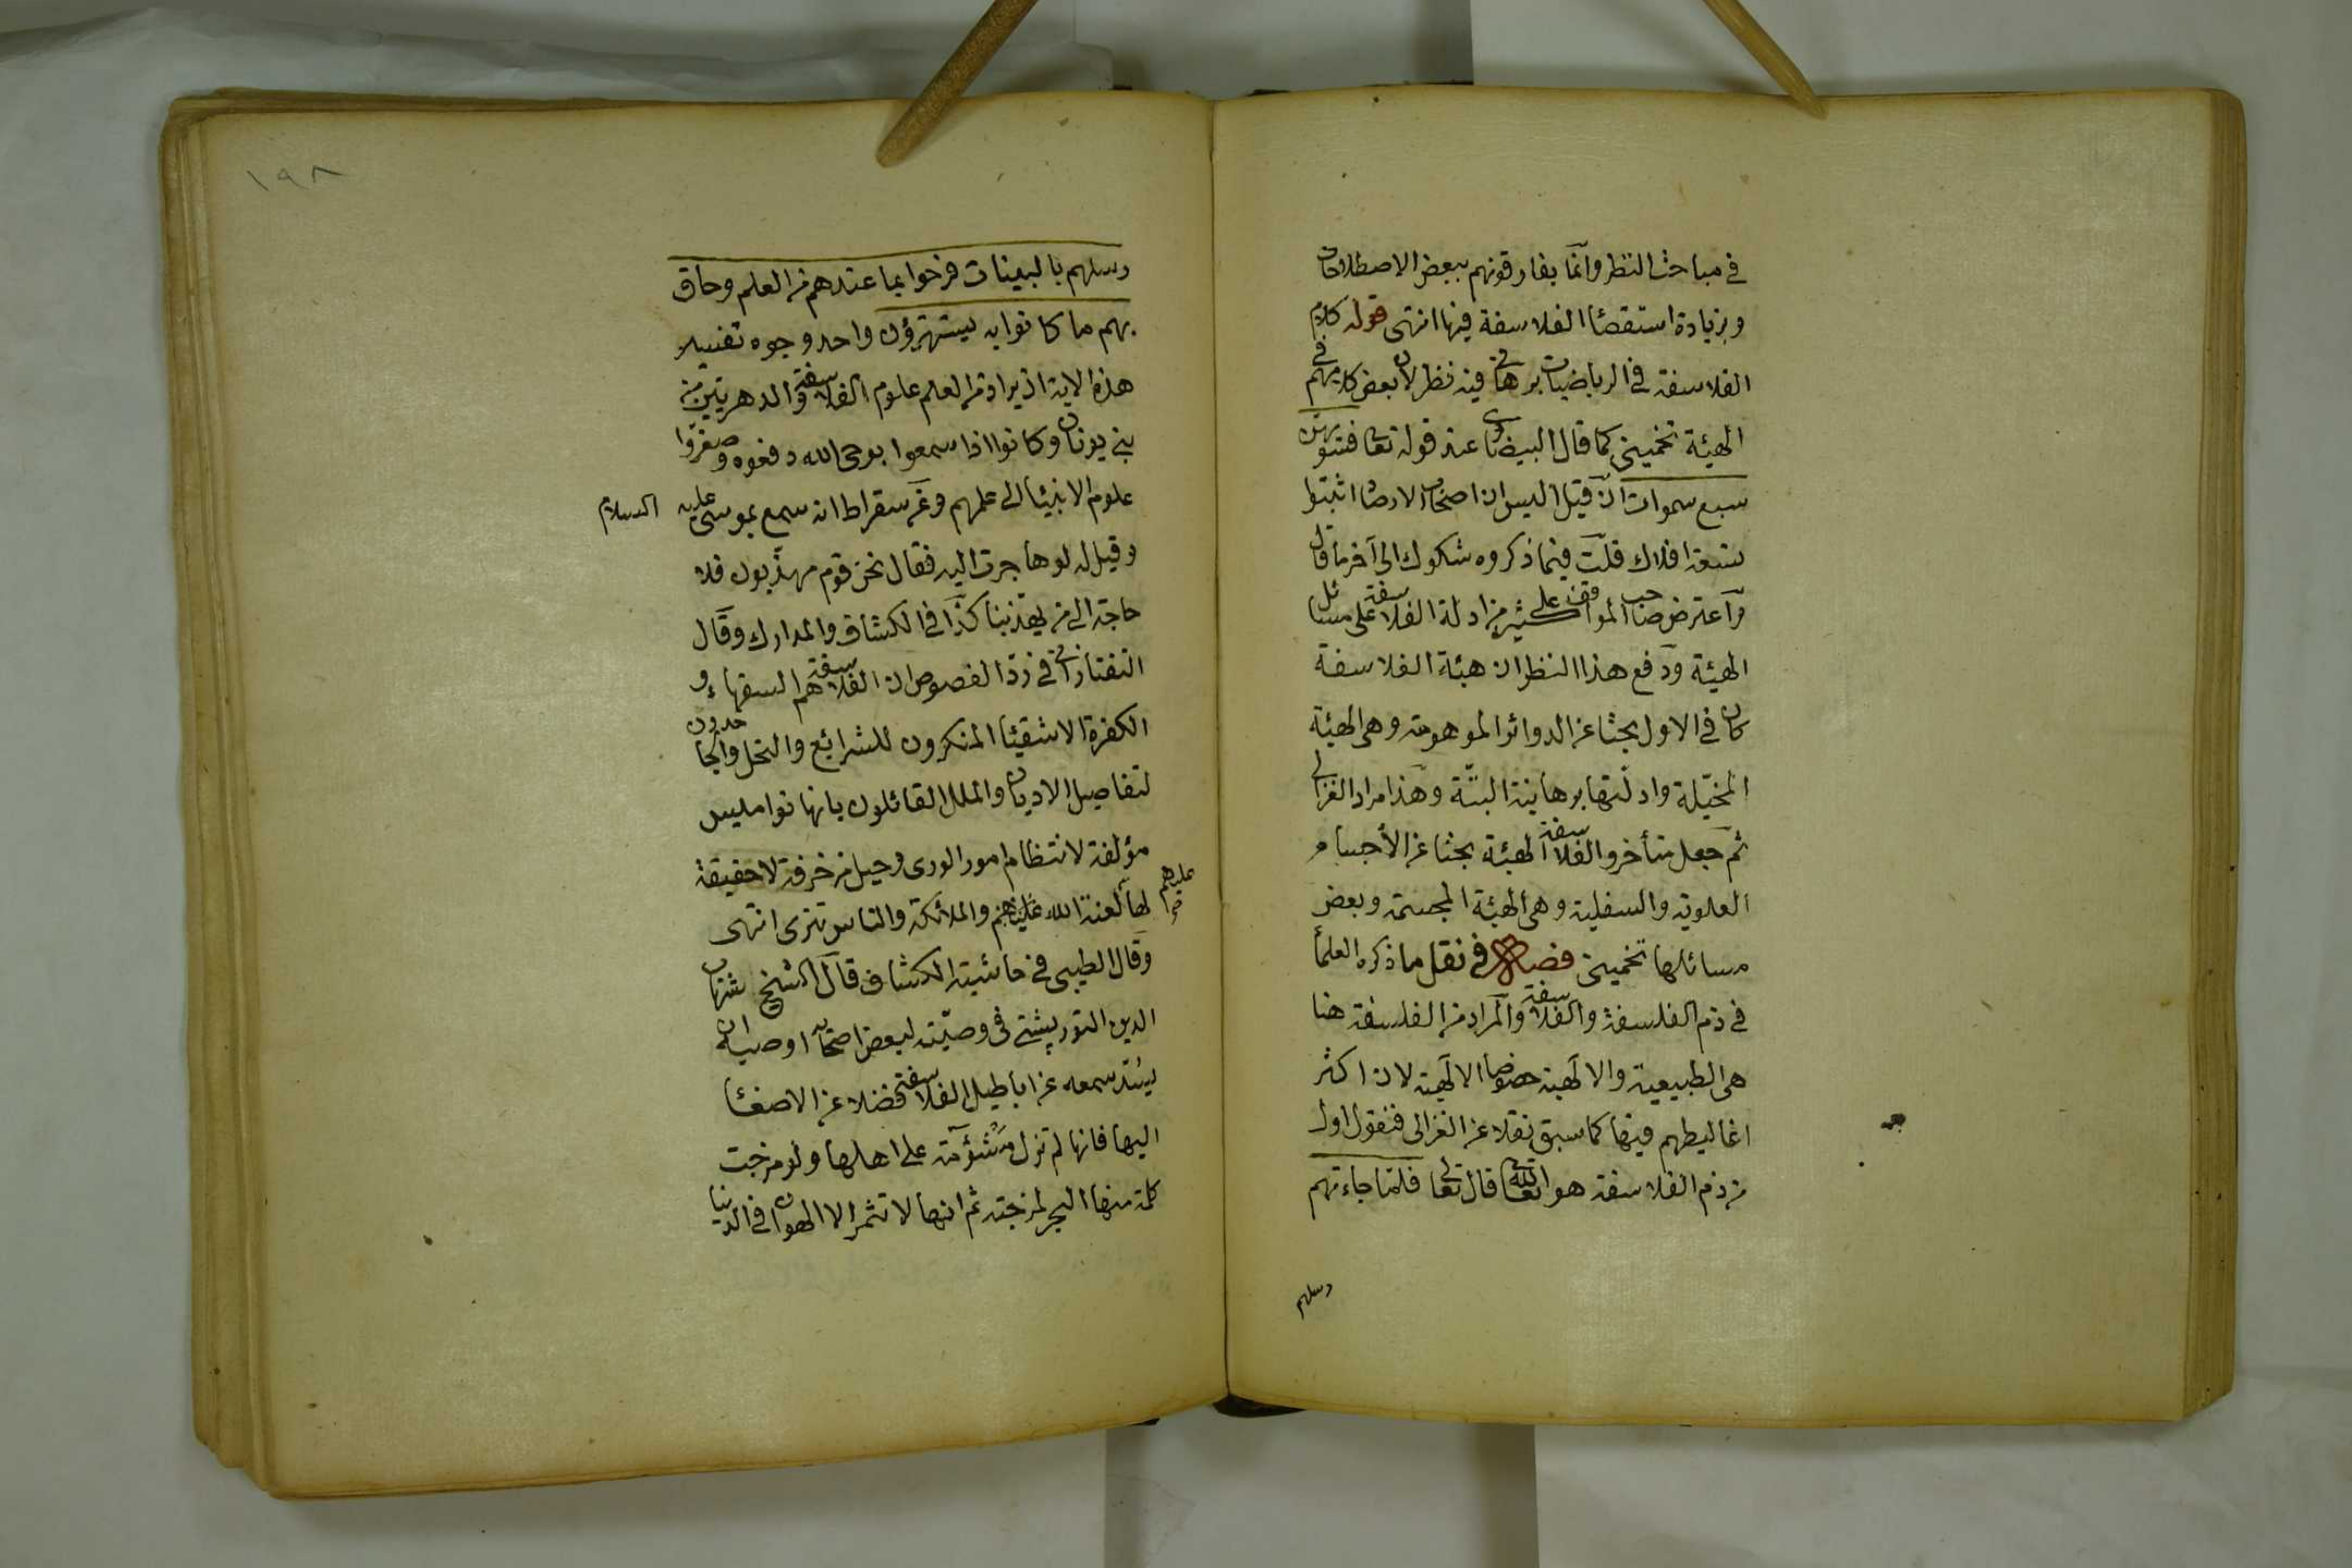 في مباحث النظر وانما يفارقونهم ببعض الاصطلاحات
وبزيادة استقصاء الفلاسفة فيها انتهى قوله كلام
الفلاسفة في الرياضيات برهاني فيه نظر لان بعض كلامهم في
الهيئة تخميني كما قال البيضاوي عند قوله تعالى فسويهن
سبع سموات ان قيل اليس ان اصحاب الارصاد اثبتوا
تسعة افلاك قلت فيما ذكروه شكوك الى آخر ما قال
واعترض صاحب المواقف على كثير من ادلة الفلاسفة على مسائل
الهيئة ودفع هذا النظر ان هيئة الفلاسفة
كان في الاول بحثا عن الدوائر الموهومة وهي الهيئة
المخيلة وادلتها برهانية البتة وهذا مراد الغزالي
ثم جعل متأخروا الفلاسفة الهيئة بحثا عن الأجسام
العلوية والسفلية وهي الهيئة المجسمة وبعض
مسائلها تخميني فصل في نقل ما ذكره العلماء
في ذم الفلسفة والفلاسفة والمراد من الفلسفة هنا
هي الطبيعية والالهية خصوصا الالهية لان اكثر
اغاليطهم فيها كما سبق نقلا عن الغزالي فنقول اول
من ذم الفلاسفة هو الله تعالى قال تعالى فلما جاءتهم
رسلهم
١٩٨
رسلهم بالبينات فرحوا بما عندهم من العلم وحاق
بهم ما كانوا به يستهزؤن واحد وجوه تفسير
هذه الاية ان يراد من العلم علوم الفلاسفة والدهريين من
بني يونان وكانوا اذا سمعوا بوحي الله دفعوه وصغروا
علوم الانبياء الى علمهم وعن سقراط انه سمع بموسى عليه السلام
وقيل له لو هاجرت اليه فقال نحن قوم مهذبون فلا
حاجة الى من يهذبنا كذا في الكشاف والمدارك وقال
التفتازاني في رد الفصوص ان الفلاسفة هم السفهاء و
الكفرة الاشقياء المنكرون للشرايع والنحل والجاحدون
لتفاصيل الاديان والملل القائلون بانها نواميس
مؤلفة لانتظام امور الورى وحيل مزخرفة لا حقيقة
لها لعنة الله عليهم والملائكة والناس تترى انتهى
عليهم
وقال الطيبي في حاشية الكشاف قال الشيخ شهاب
الدين التوربشتي في وصيته لبعض اصحابه اوصيه ان
يسد سمعه عن اباطيل الفلاسفة فضلا عن الاصغاء
اليها فانها لم تزل مشؤمة على اهلها ولو مزجت
كلمة منها البحر لمزجته ثم انها لا تثمر الا الهوان في الدنيا